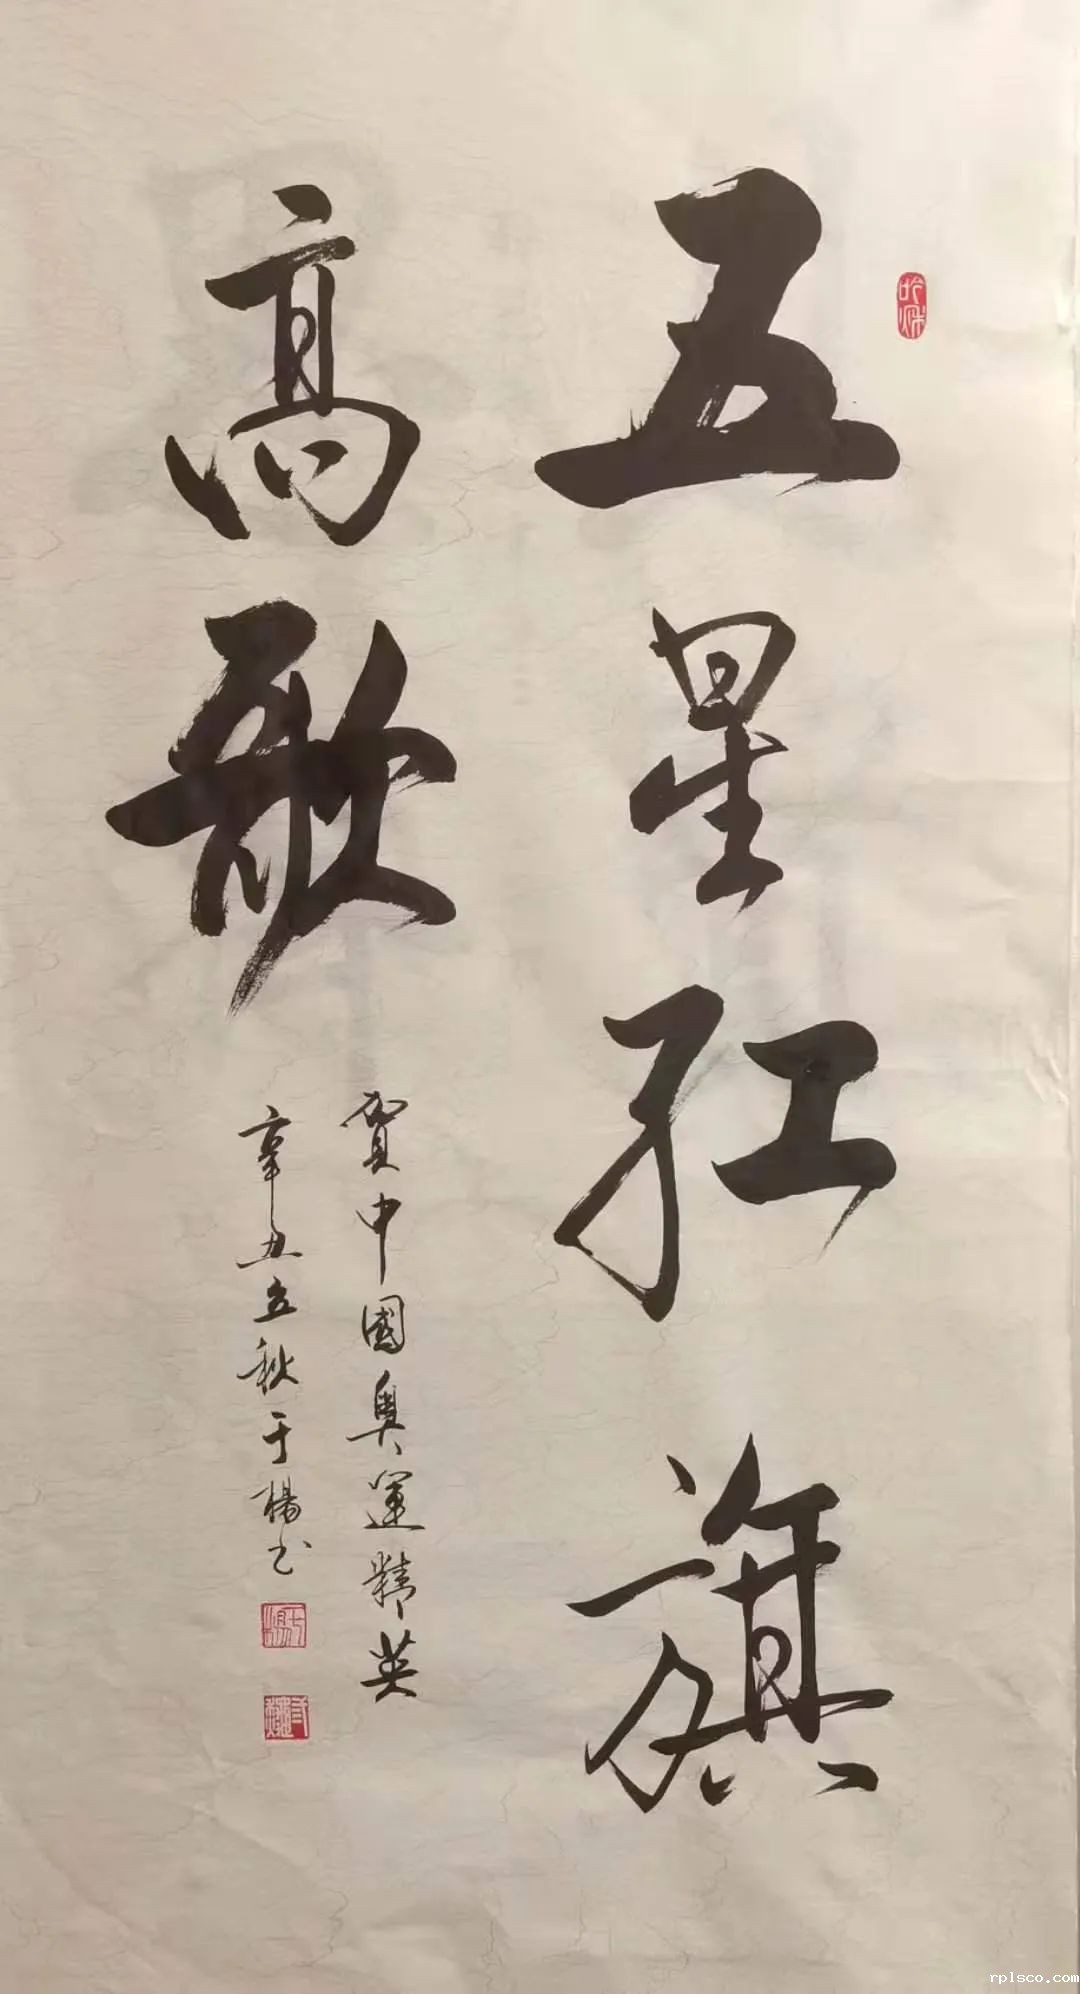 五星红旗
高歌
贺中國奥運精英
辛丑立秋于楊书
rplsco.com